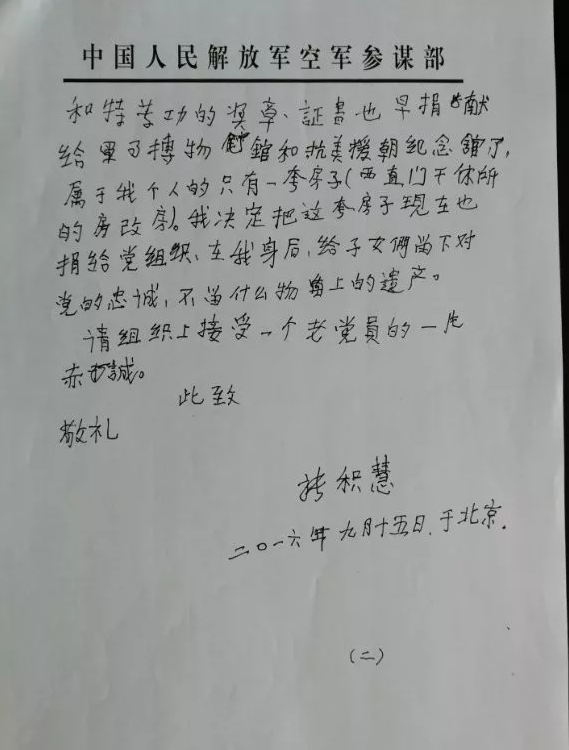 中国人民解放军空军参谋部
和特等功的奖章、証書也早捐献
给军事博物館和抗美援朝纪念館了,
属于我个人的只有一套房子(西直门干休所
的房改房)。我决定把这套房子现在也
捐给党组织、在我身后,给子女們留下对
党的忠诚,不留什么物质上的遗产。
请组织上接受一个老党員的一片
赤誠。
此致
敬礼
张积慧
二〇一六年九月十五日.于北京.
(二)